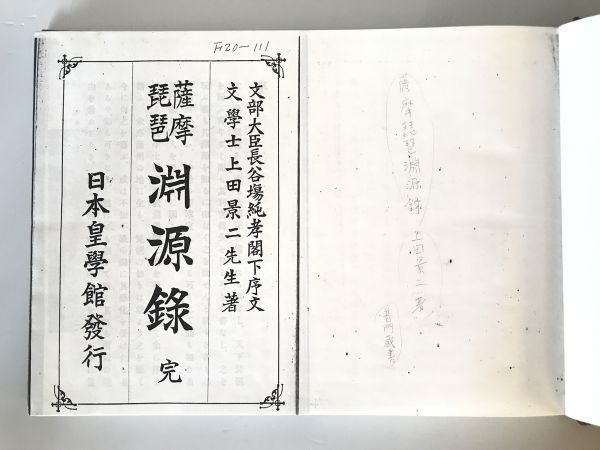 薩摩琵琶淵源録 上田景二著
普門蔵書
F20-111
文部大臣長谷塲純孝閣下序文
文學士上田景二先生著
薩摩
琵琶
淵源錄 完
日本皇學館發行